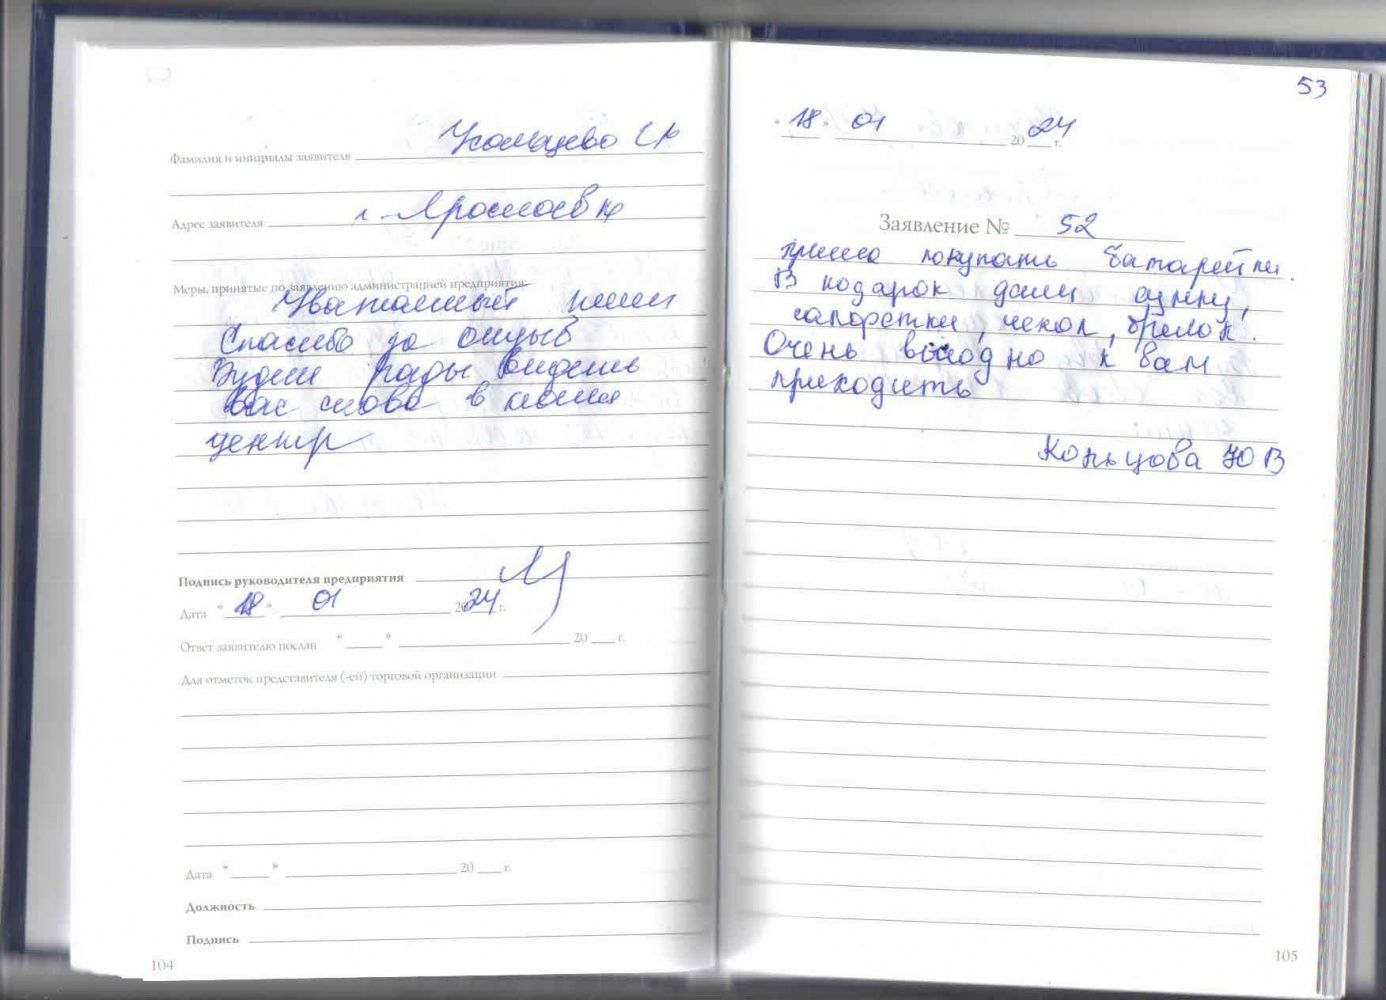 Фамилия и инициалы заявителя
Адрес заявителя г. Ярославль
Меры, принятые по заявлению администрацией предприятия
Уважаемый
Спасибо за отзыв
Будем рады видеть
Вас снова в нашем
центр
Подпись руководителя предприятия
Дата " 18 " 01 2024 г.
Ответ заявителю послан " " 20 г.
Для отметок представителя (-ей) торговой организации
Дата " " 20 г.
Должность
Подпись
104
53
" 18 " 01 2024 г.
Заявление № 52
пришла покупать батарейки.
В подарок дали сумку,
салфетки, чехол, брелок.
Очень выгодно к вам
приходить
Кольцова Ю В
105